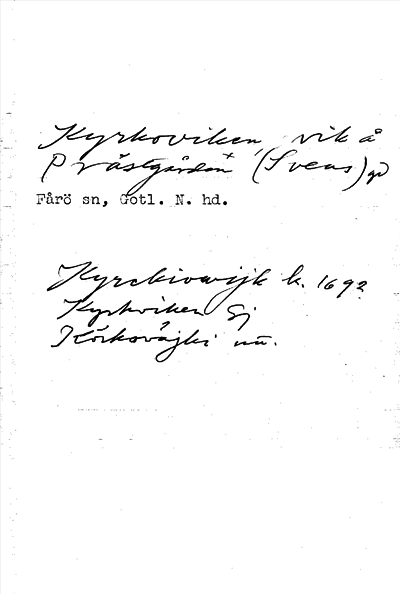 Kyrkoviken, vik å
Prästgården + (Svens) gd
Fårö sn, Gotl. N. hd.
Kyrckiowijk k. 1692
Kyrkviken Sj
Körkovájki nu.